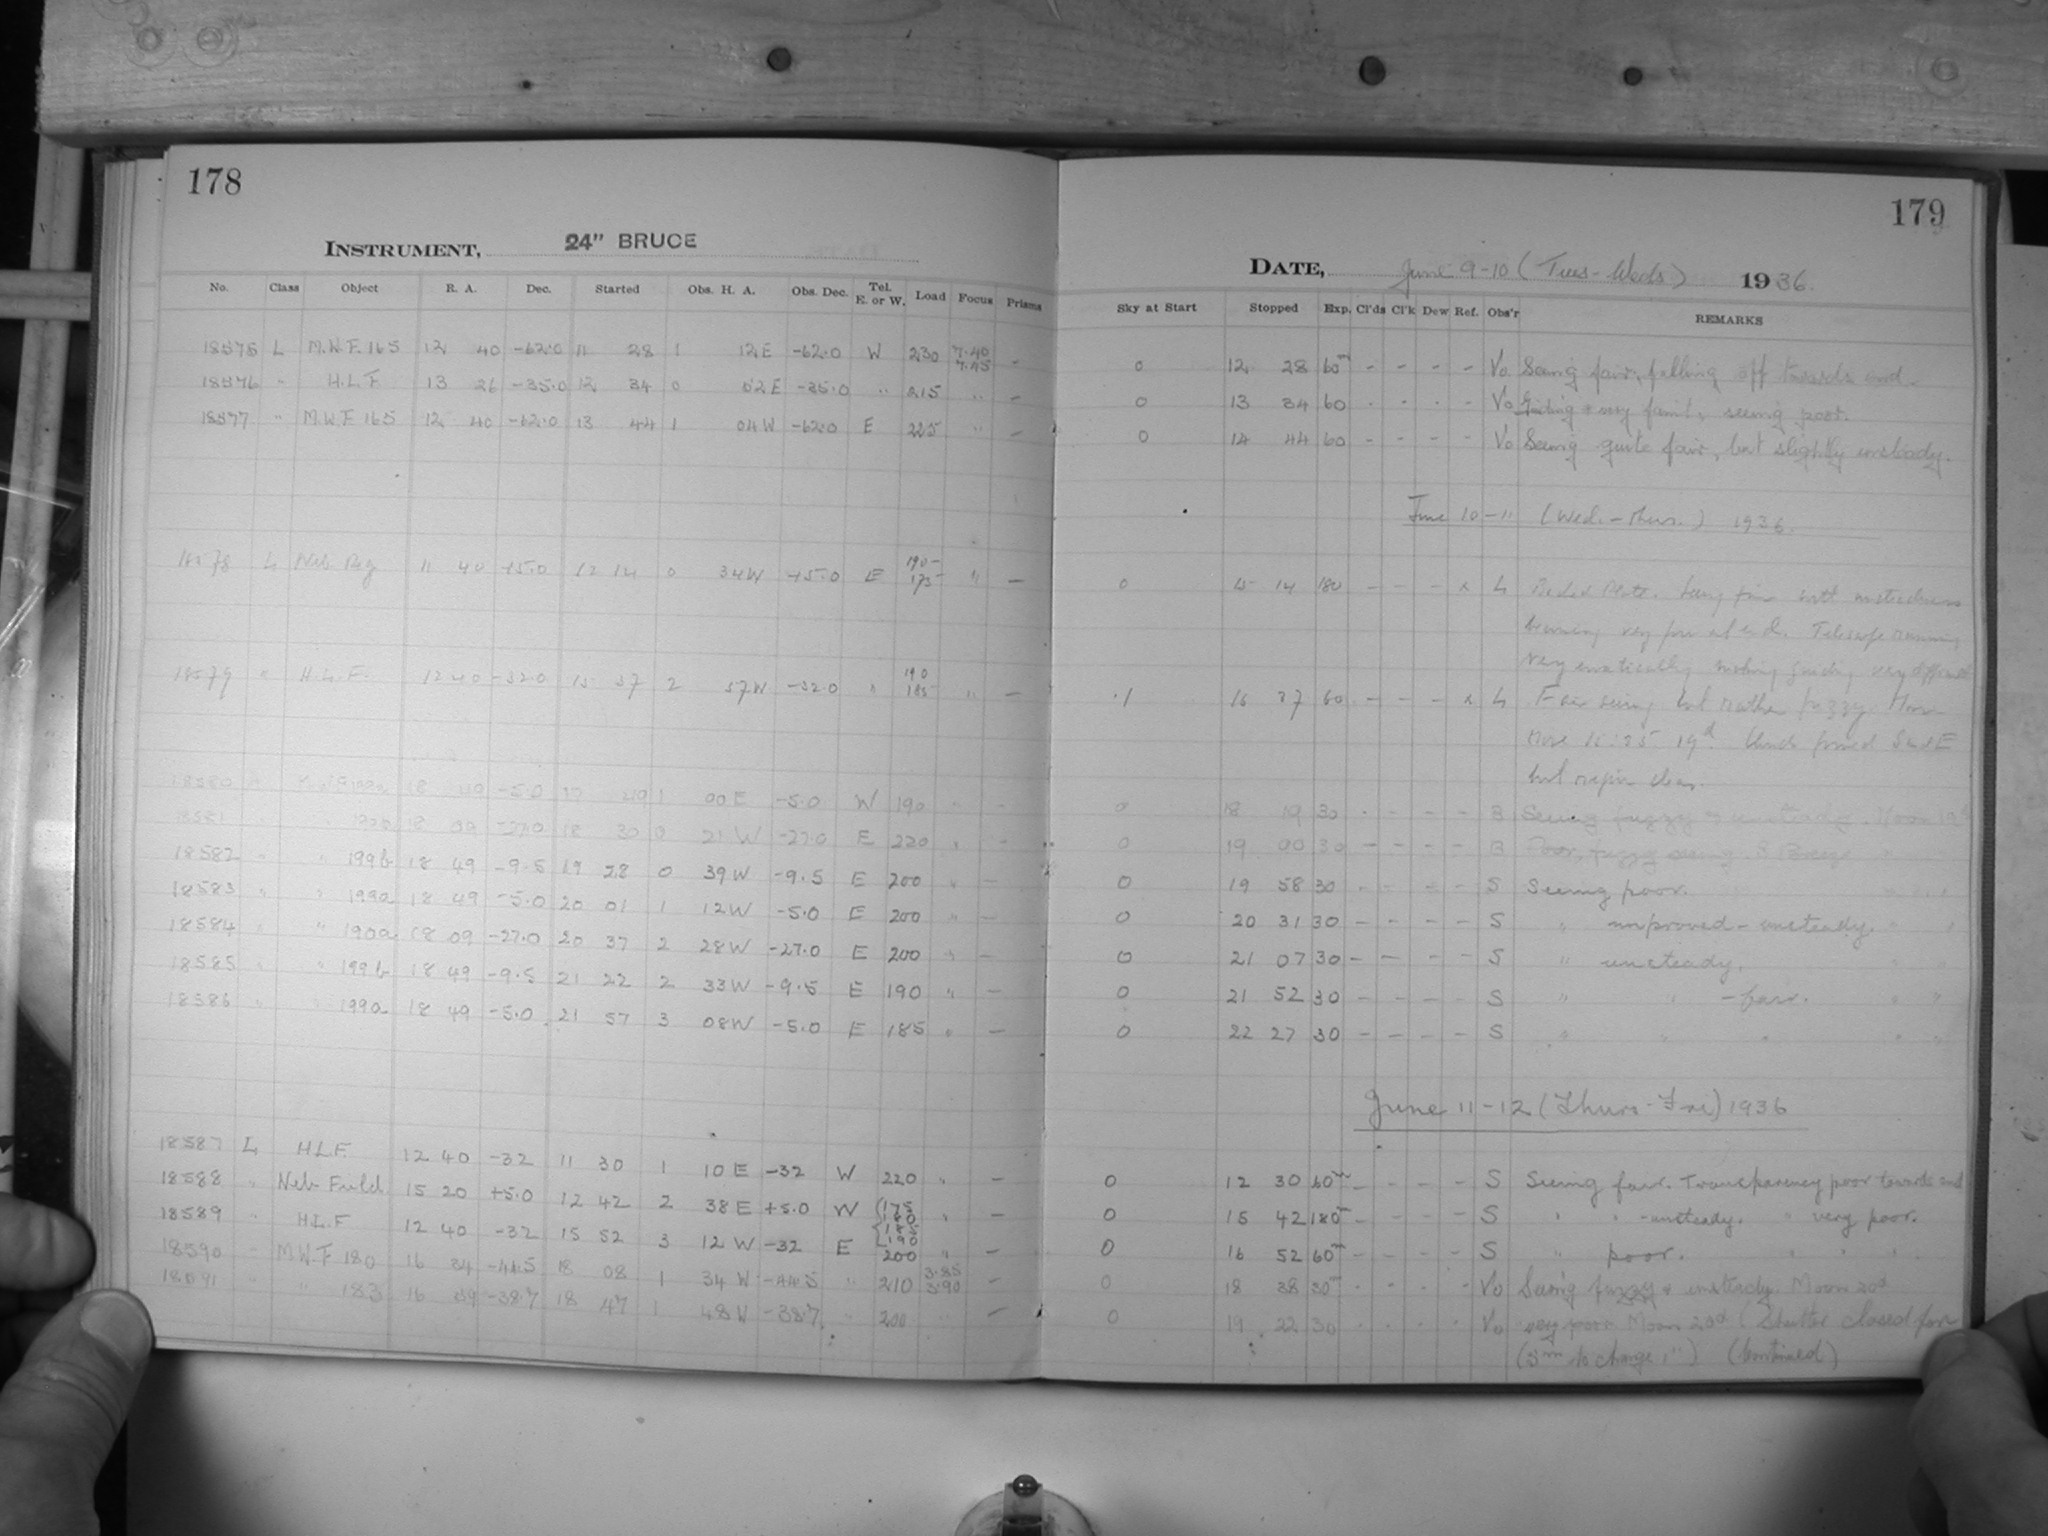 178
INSTRUMENT, 24" BRUCE
No. Class Object R. A. Dec. Started Obs. H. A. Obs. Dec. Tel. E. or W. Load Focus Prisms
18575 L M.W.F. 165 12 40 -62.0 11 28 1 12E -62.0 W 230 7.40 7.45 -
18576 " H.L.F 13 26 -35.0 12 34 0 52E -35.0 " 215 " -
18577 " M.W.F 165 12 40 -62.0 13 44 1 04W -62.0 E 225 " -
18578 L Neb Reg 11 40 +5.0 12 14 0 34W +5.0 E 190- 175- " -
18579 " H.L.F. 12 40 -32.0 15 37 2 57W -32.0 " 190 185- " -
18580 18 49 -5.0 17 49 1 00E -5.0 W 190 " -
18581 " " 190a 18 09 -27.0 18 30 0 21W -27.0 E 220 " -
18582 " " 199b 18 49 -9.5 19 28 0 39W -9.5 E 200 " -
18583 " " 199a 18 49 -5.0 20 01 1 12W -5.0 E 200 " -
18584 " " 190a 18 09 -27.0 20 37 2 28W -27.0 E 200 " -
18585 " " 199b 18 49 -9.5 21 22 2 33W -9.5 E 190 " -
18586 " " 199a 18 49 -5.0 21 57 3 08W -5.0 E 185 " -
18587 L HLF 12 40 -32 11 30 1 10E -32 W 220 " -
18588 " Neb Field 15 20 +5.0 12 42 2 38E +5.0 W " -
18589 " HLF 12 40 -32 15 52 3 12W -32 E 200 " -
18590 " M.W.F 180 16 34 -44.5 18 08 1 34W -44.5 " 210 3.85 3.90 -
18591 " " 183 16 59 -38.7 18 47 1 48W -38.7 " 200 " -
179
DATE, June 9-10 (Tues-Weds) 1936.
Sky at Start Stopped Exp. Cl'ds Cl'k Dew Ref. Obs'r REMARKS
0 12 28 60m - - - - Vo Seeing fair, falling off towards end.
0 13 34 60 - - - - Vo Guiding * very faint, seeing poor.
0 14 44 60 - - - - Vo Seeing quite fair, but slightly unsteady.
June 10-11 (Wed.-Thurs.) 1936.
0 15 14 180 - - - x L Backed Plate. Seeing fair with unsteadiness
becoming very poor at end. Telescope running
very erratically making guiding very difficult
.1 16 37 60 - - - x L Fair seeing but rather fuzzy. Moon
rose 19d. Clouds formed S and E
but region clear.
0 18 19 30 - - - - B Seeing fuzzy & unsteady. Moon 19d
0 19 00 30 - - - - B Poor, fuzzy seeing. S Breeze " "
0 19 58 30 - - - - S Seeing poor. " "
0 20 31 30 - - - - S " improved - unsteady. " "
0 21 07 30 - - - - S " unsteady. " "
0 21 52 30 - - - - S " " - fair. " "
0 22 27 30 - - - - S " " " " "
June 11-12 (Thurs-Fri) 1936
0 12 30 60m - - - - S Seeing fair. Transparency poor towards end
0 15 42 180m - - - - S " " - unsteady. " very poor.
0 16 52 60m - - - - S " poor. " " "
0 18 38 30m - - - - Vo Seeing fuzzy & unsteady. Moon 20d
0 19 22 30 - - - - Vo very poor Moon 20d (Shutter closed for
(5m to change ") (Continued)